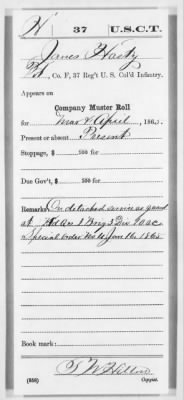 H 37 U.S.C.T.
James Hasty
Co. F, 37 Reg't U. S. Col'd Infantry.
Appears on
Company Muster Roll
for Mar & April, 1865.
Present or absent Present
Stoppage, $ 100 for
Due Gov't, $ 100 for
Remarks: On detached service as guard
at Hd Qrs 1 Brig 3 Div 25 A.C.
Special Order No 11 Jan 16 1865
Book mark:
(858) Copyist.